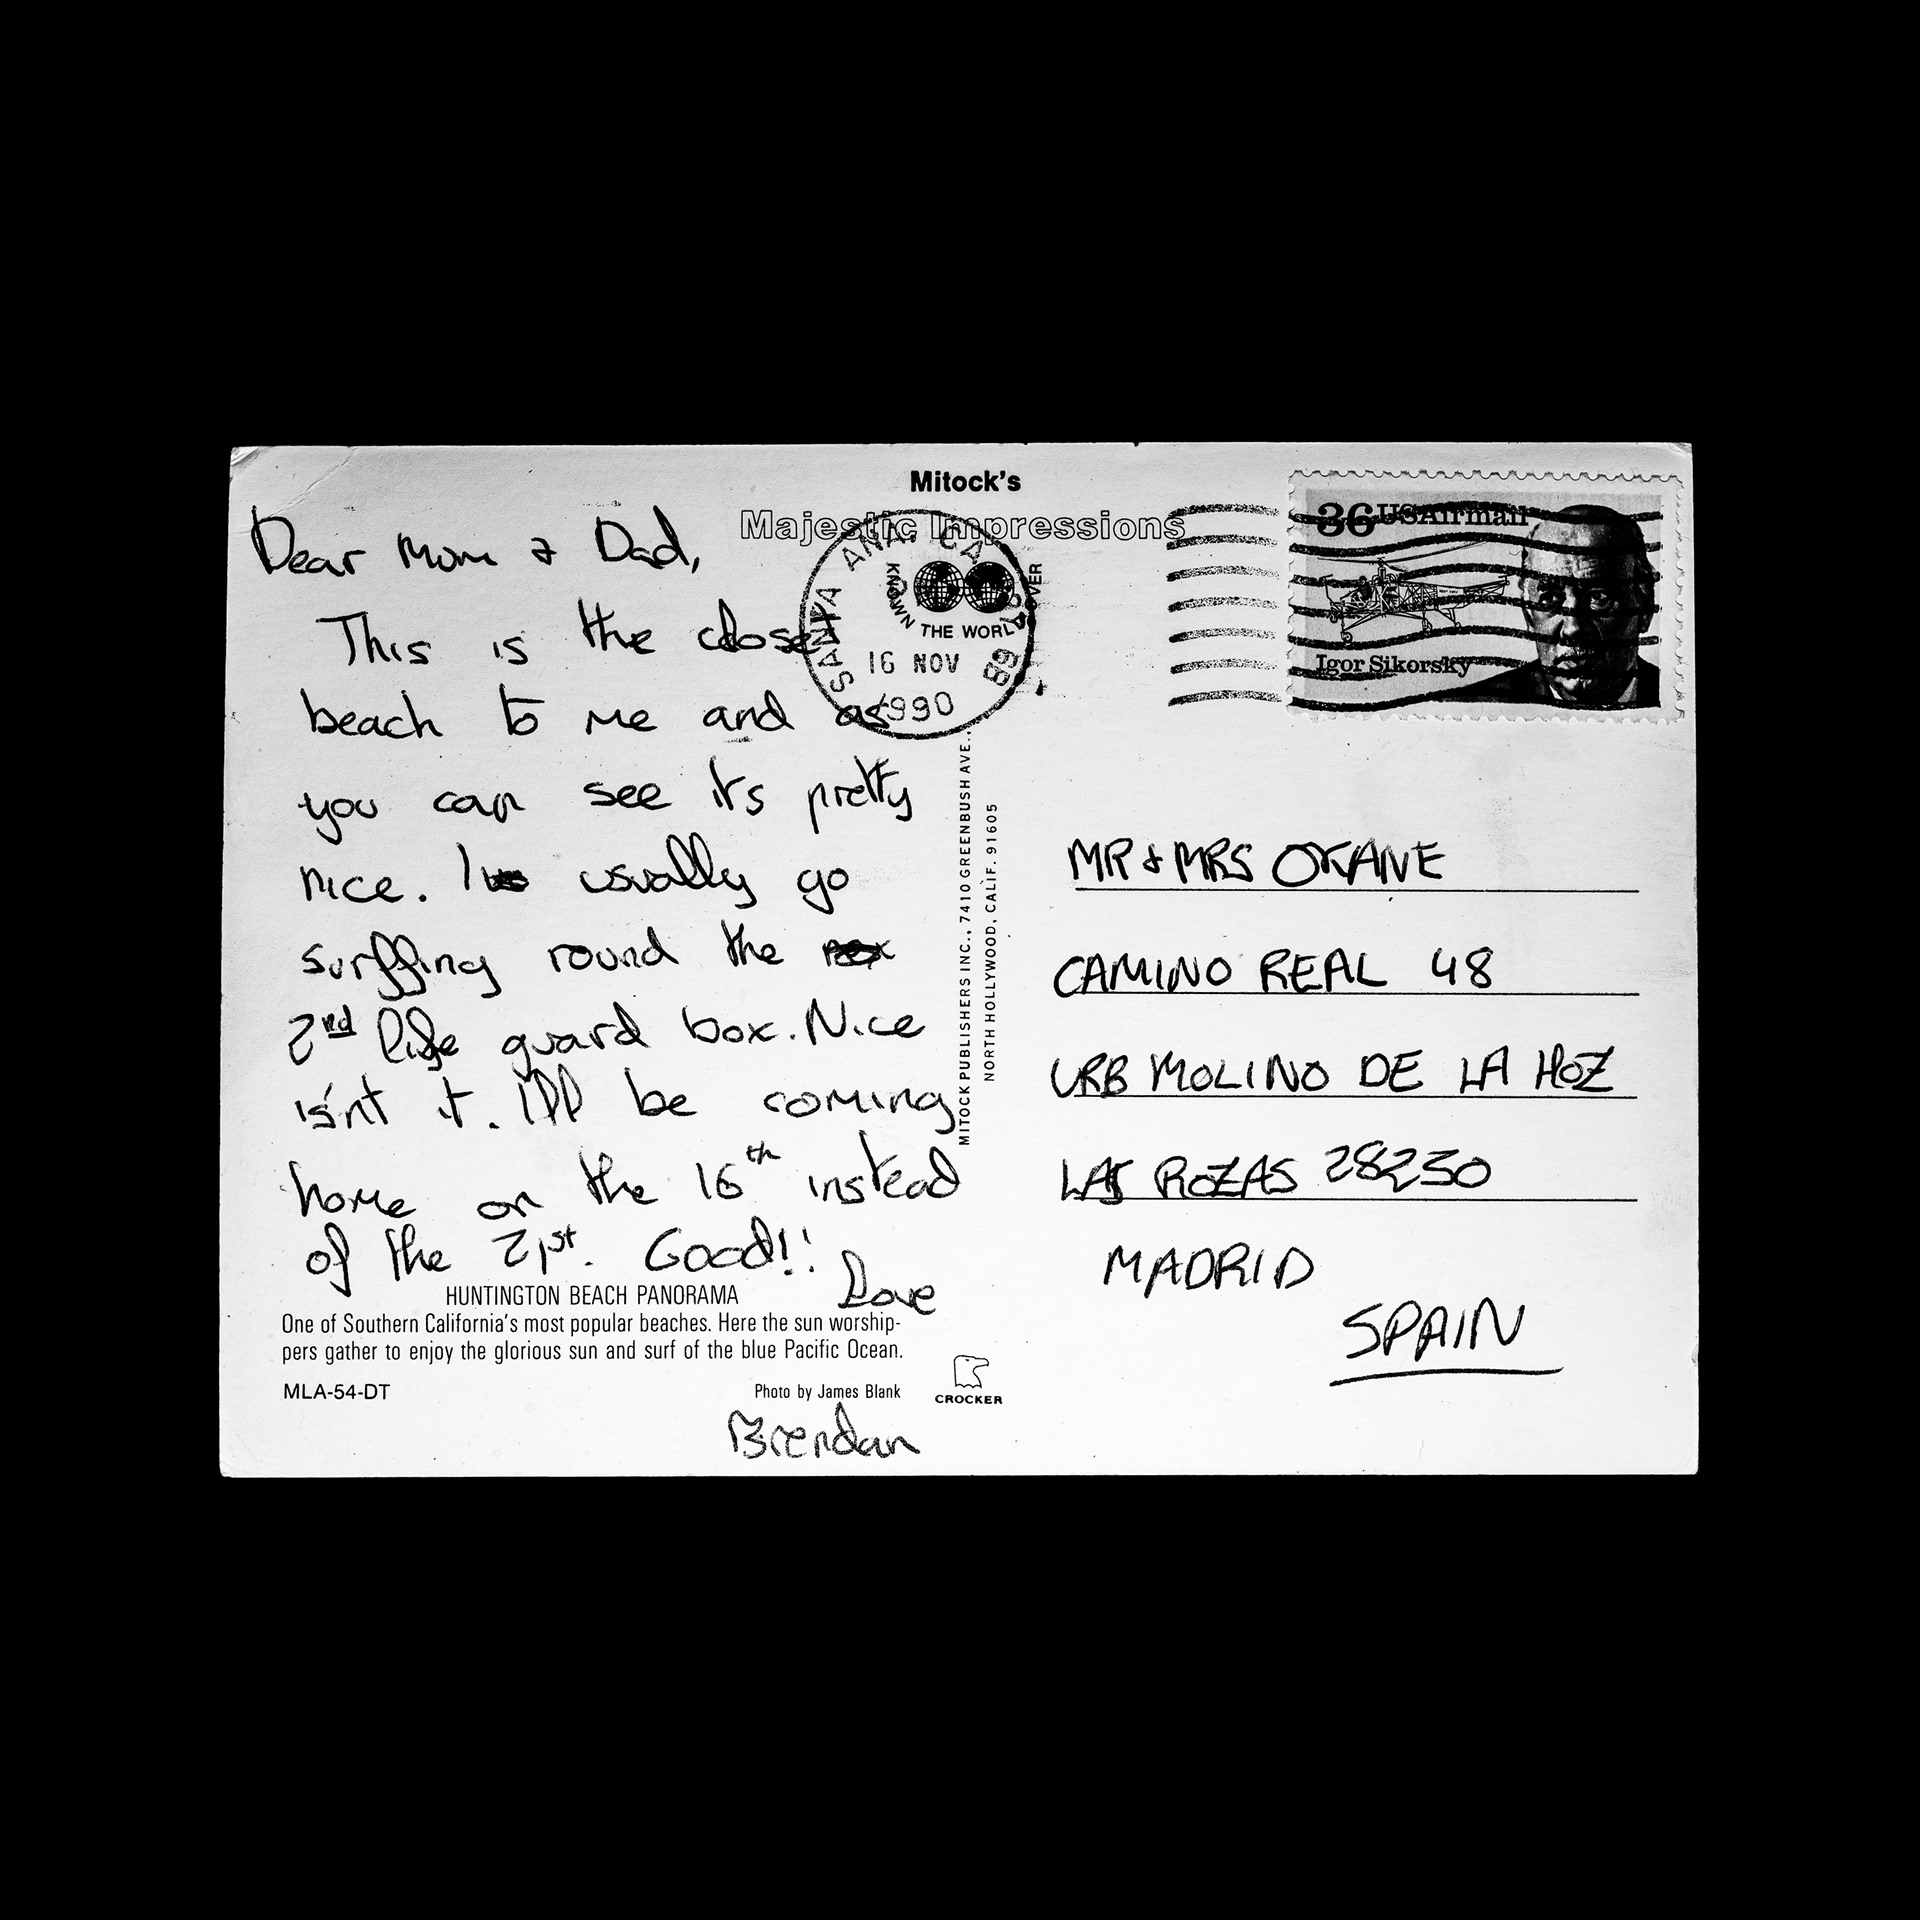 Mitock's
Majestic Impressions
SANTA ANA, CA
KNOWN THE WORLD OVER
16 NOV
1990
36 USAirmail
Igor Sikorsky
Dear Mom & Dad,
This is the closest
beach to me and as
you can see it's pretty
nice. I usually go
surffing round the
2nd life guard box. Nice
isn't it. I'll be coming
home on the 16th instead
of the 21st. Good!!
Love
HUNTINGTON BEACH PANORAMA
One of Southern California's most popular beaches. Here the sun worship-
pers gather to enjoy the glorious sun and surf of the blue Pacific Ocean.
MLA-54-DT
Photo by James Blank
CROCKER
Brendan
MITOCK PUBLISHERS INC., 7410 GREENBUSH AVE.,
NORTH HOLLYWOOD, CALIF. 91605
MR & MRS OKANE
CAMINO REAL 48
URB MOLINO DE LA HOZ
LAS ROZAS 28230
MADRID
SPAIN